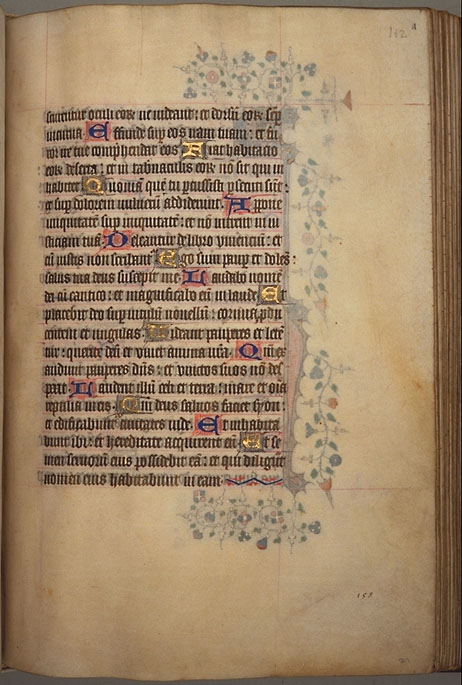 112
scurentur oculi eorꝝ ne uideant: et dorsū eorꝝ sēp
incurua Effunde sup eos iram tuam: et fu
ror ire tue comp̄hendat eos Fiat habitacio
eorꝝ deserta: et in tabnaculis eorꝝ nō sit qui in
habitet Quoniā quē tu pcussisti psecuti sūt:
et sup dolorem vulnerū addiderunt. Appone
iniquitatē sup iniquitatē: et nō intrent in iu
sticiam tuā Deleantur de libro viuenciū: et
cū iustis non scribant̄ Ego sum paup et dolēs:
salus tua deus suscepit me Laudabo nomē
dei cū cantico: et magnificabo eū in laude Et
placebit deo sup vitulū nouellū: cornua pdu
centem et ungulas Videant pauperes et letē
tur: querite deū et viuet anima vrā. Qm̄ ex
audiuit pauperes dn̄s: et vinctos suos nō des
pexit Laudent illū celi et terra: mare et oīa
reptilia in eis. Qm̄ deus saluā faciet syon:
et edificabuntur ciuitates iude. Et inhabita
bunt ibi: et hereditate acquirent eā Et se
men seruorū eius possidebit eā: et qui diligūt
nomen eius habitabunt in eam
153